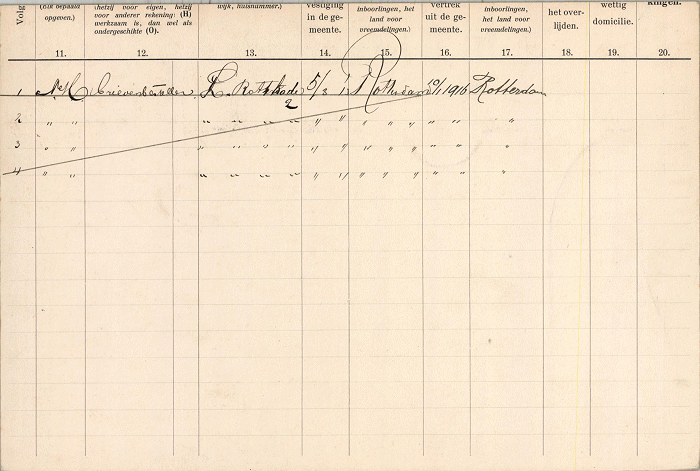 Volg
(Elk bepaald opgeven.)
(hetzij voor eigen, hetzij voor anderer rekening: (H) werkzaam is, dan wel als ondergeschikte (O).
wijk, huisnummer.)
vestiging in de gemeente.
inboorlingen, het land voor vreemdelingen.)
vertrek uit de gemeente.
inboorlingen, het land voor vreemdelingen.)
het overlijden.
wettig domicilie.
kingen.
11. 12. 13. 14. 15. 16. 17. 18. 19. 20.
1 N.H. Brievenbesteller L. Rottekade 5/8 Rotterdam 1916 Rotterdam
2
2 " " " " " " " " " " " " " "
3 " " " " " " " " " " " " " "
4 " " " " " " " " " " " " " "